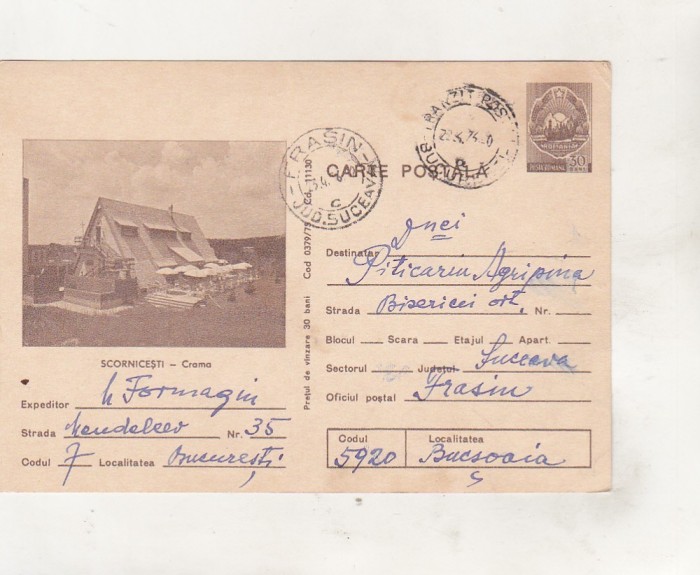 CARTE POȘTALĂ
POȘTA ROMÂNĂ
30
BANI
FRASIN
JUD. SUCEAVA
TRANZIT POȘ
BUCU
SCORNICEȘTI – Crama
Expeditor Formagin
Strada Mendeleev Nr. 35
Codul 7 Localitatea București
Prețul de vînzare 30 bani Cod 0379/73
Cd. 11130
Dnei
Destinatar Piticariu Agripina
Strada Bisericei ort. Nr.
Blocul Scara Etajul Apart.
Sectorul Județul Suceava
Oficiul poștal Frasin
Codul Localitatea
5920 Bucșoaia